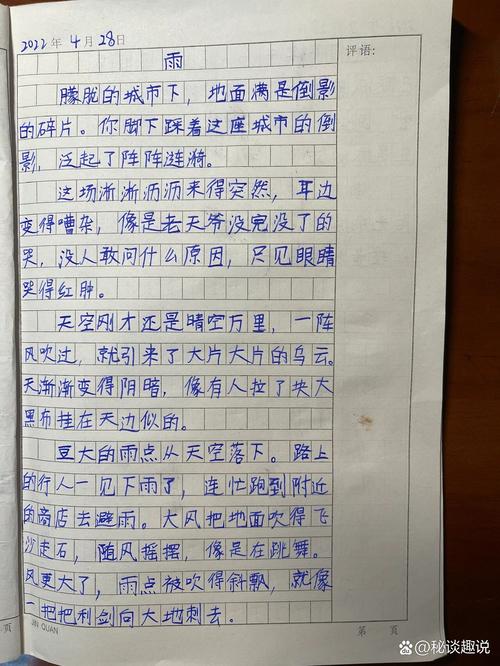 2022年 4月 28日
评语:
雨
朦胧的城市下，地面满是倒影
的碎片。你脚下踩着这座城市的倒
影，泛起了阵阵涟漪。
这场淅淅沥沥来得突然，耳边
变得嘈杂，像是老天爷没完没了的
哭，没人敢问什么原因，只见眼睛
哭得红肿。
天空刚才还是晴空万里，一阵
风吹过，就引来了大片大片的乌云。
天渐渐变得阴暗，像有人拉了块大
黑布挂在天边似的。
豆大的雨点从天空落下。路上
的行人一见下雨了，连忙跑到附近
的商店去避雨。大风把地面吹得飞
沙走石，随风摇摆，像是在跳舞。
风更大了，雨点被吹得斜飘，就像
一把把利剑向大地刺去。
页
JIN QUAN
第 页
秘谈趣说